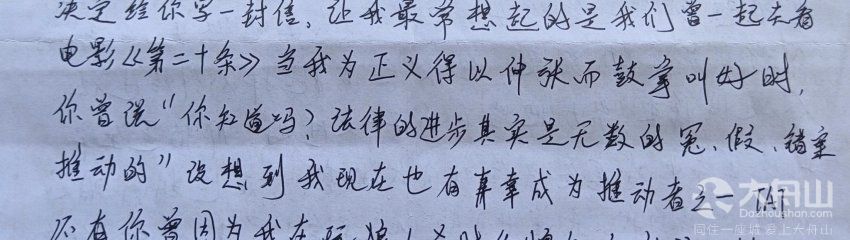 决定给你写一封信，让我最常想起的是我们曾一起去看
电影《第二十条》当我为正义得以伸张而鼓掌叫好时，
你曾说“你知道吗？法律的进步其实是无数的冤、假、错案
推动的”没想到我现在也有幸成为推动者之一 TAT
还有你曾因为我在
大舟山
Dazhoushan.com
同住一座城 爱上大舟山